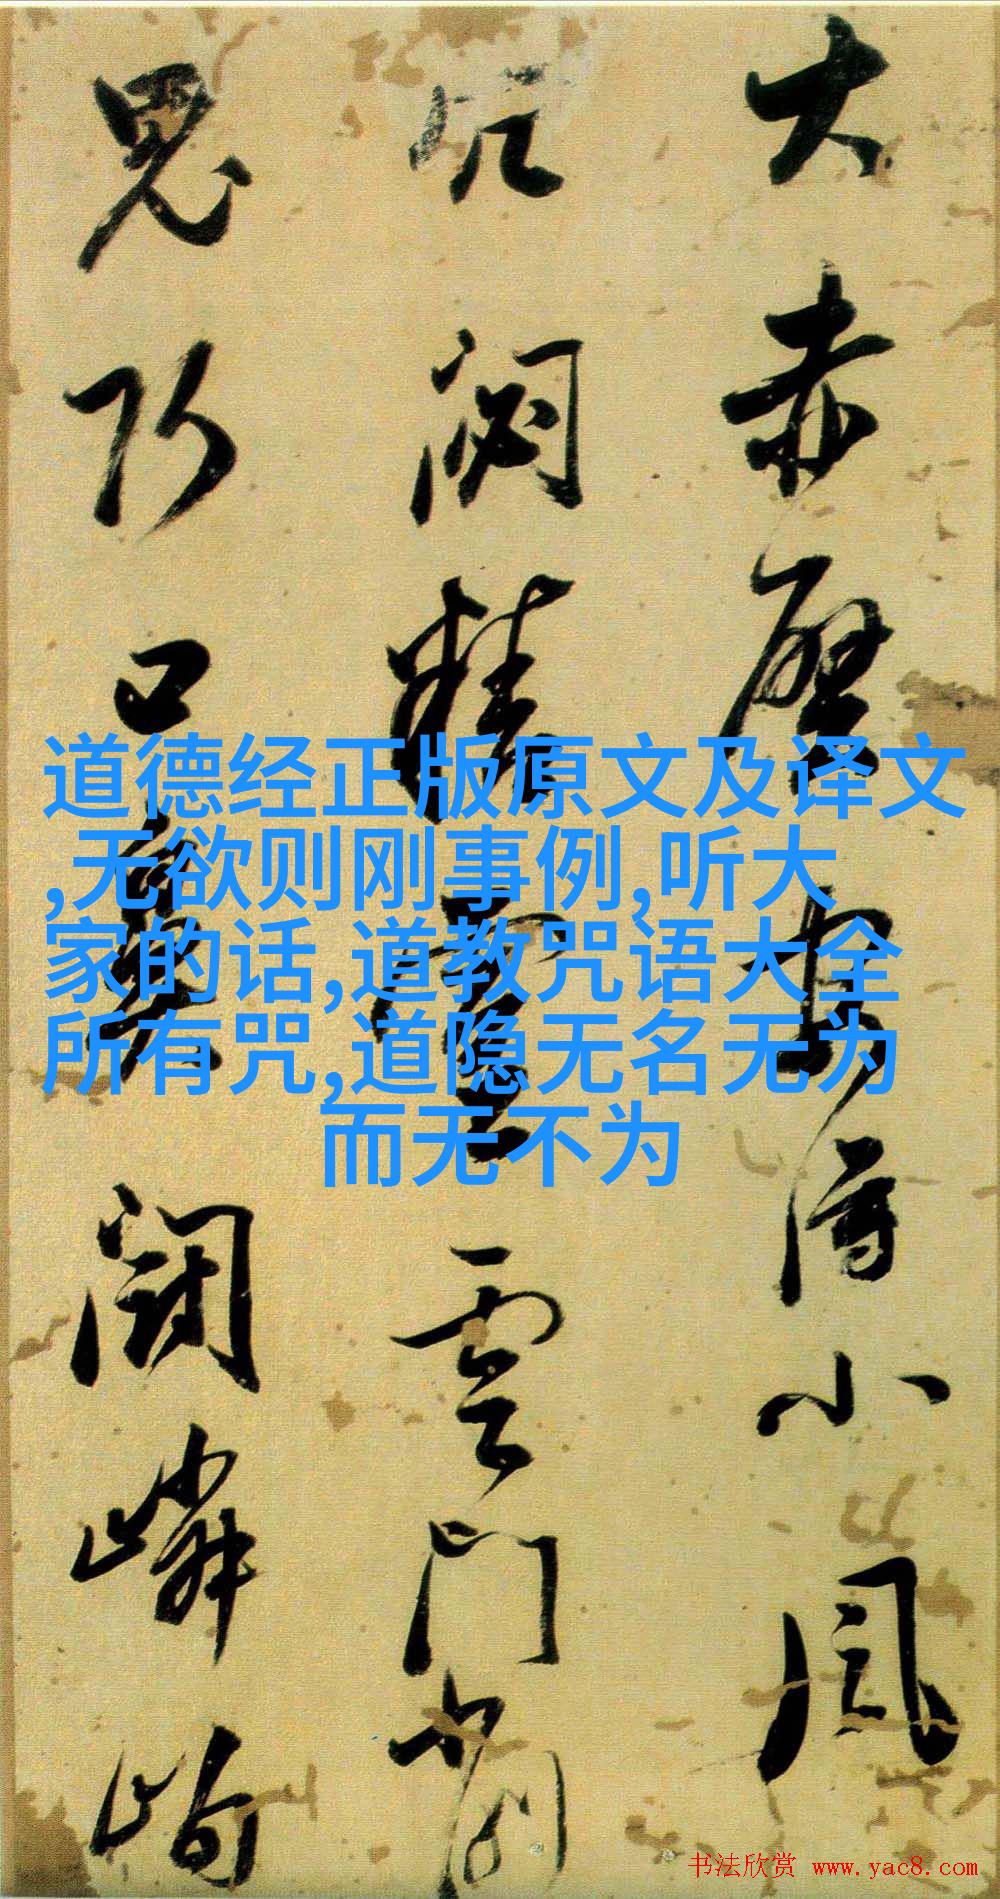 道德经正版原文及译文
,无欲则刚事例,听大
家的话,道教咒语大全
所有咒,道隐无名无为
而无不为
大赤壁得小風
精靈雲門
口嶙峋
书法欣赏 www.yac8.com